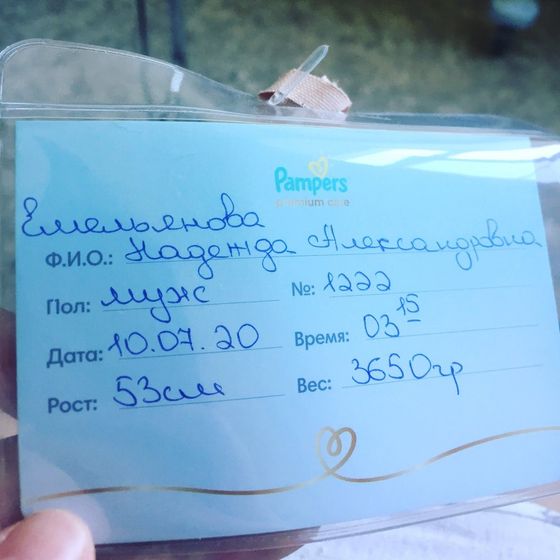 Pampers
premium care
Емельянова
Ф.И.О.: Надежда Александровна
Пол: муж №: 1222
Дата: 10.07.20 Время: 03 15
Рост: 53см Вес: 3650гр